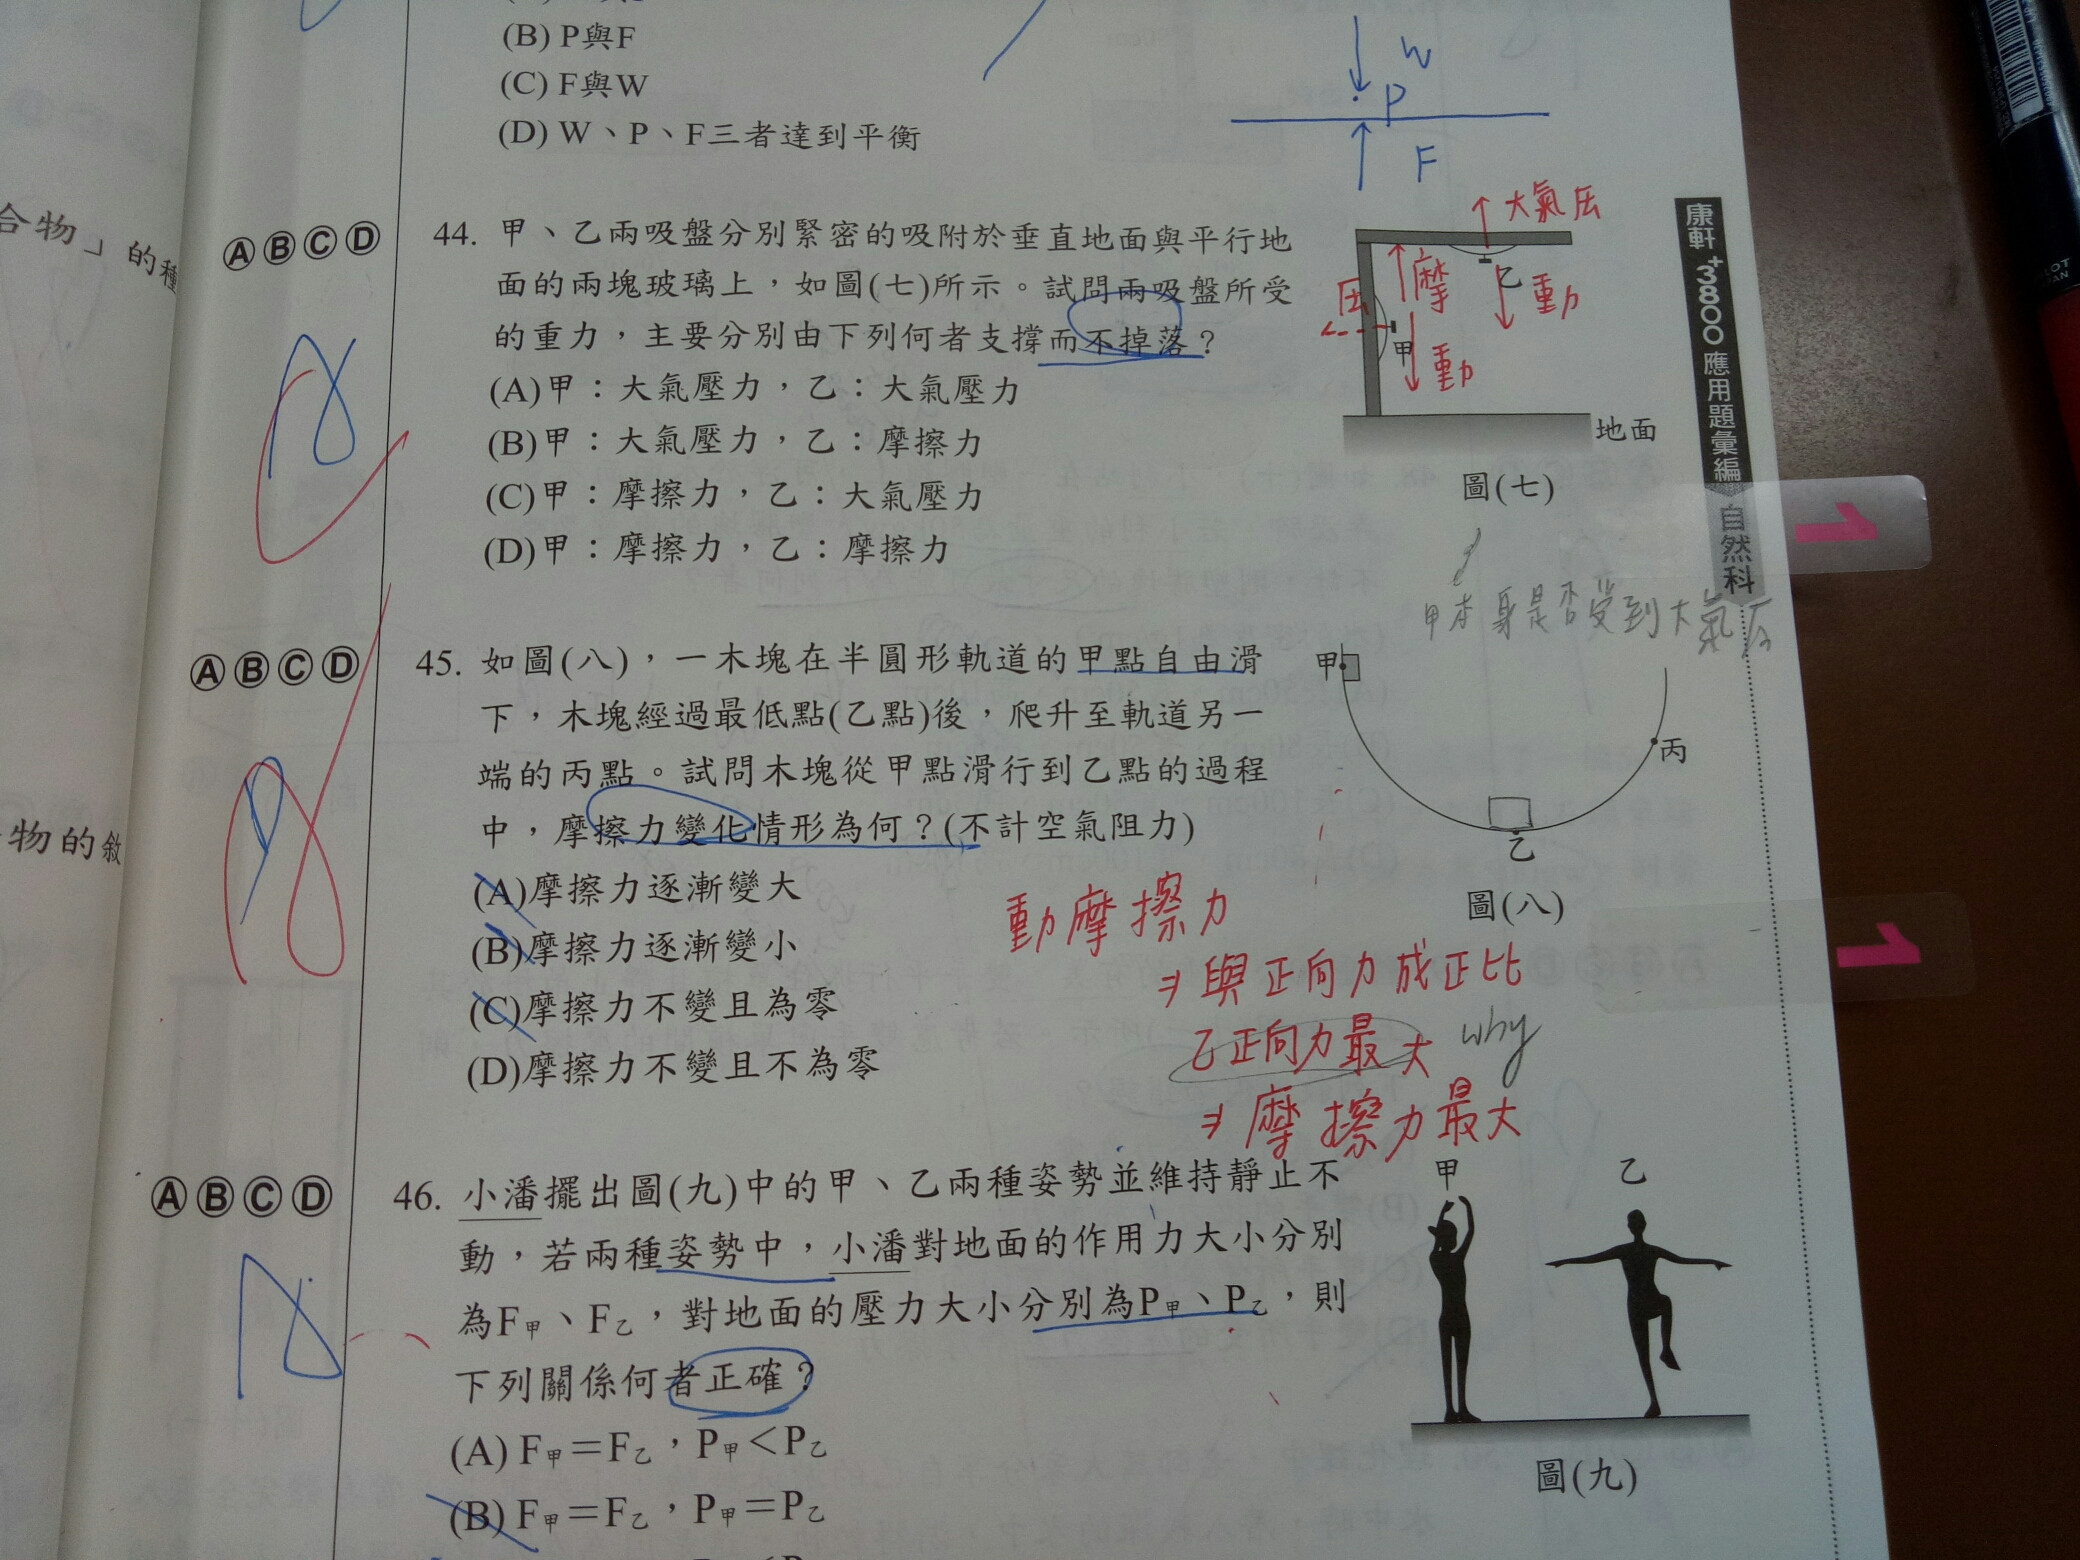 (B) P與F
(C) F與W
(D) W、P、F三者達到平衡
W
P
F
合物」的種
ⒶⒷⒸⒹ
44. 甲、乙兩吸盤分別緊密的吸附於垂直地面與平行地
面的兩塊玻璃上，如圖(七)所示。試問兩吸盤所受
的重力，主要分別由下列何者支撐而不掉落？
(A)甲：大氣壓力，乙：大氣壓力
(B)甲：大氣壓力，乙：摩擦力
(C)甲：摩擦力，乙：大氣壓力
(D)甲：摩擦力，乙：摩擦力
大氣压
摩
乙
重力
压
甲
重力
地面
圖(七)
甲本身是否受到大氣压
康軒
+3800
應用題彙編
自然科
1
1
ⒶⒷⒸⒹ
45. 如圖(八)，一木塊在半圓形軌道的甲點自由滑
下，木塊經過最低點(乙點)後，爬升至軌道另一
端的丙點。試問木塊從甲點滑行到乙點的過程
中，摩擦力變化情形為何？(不計空氣阻力)
(A)摩擦力逐漸變大
(B)摩擦力逐漸變小
(C)摩擦力不變且為零
(D)摩擦力不變且不為零
甲
丙
乙
圖(八)
動摩擦力
⇒與正向力成正比
乙正向力最大 why
⇒摩擦力最大
物的敘
ⒶⒷⒸⒹ
46. 小潘擺出圖(九)中的甲、乙兩種姿勢並維持靜止不
動，若兩種姿勢中，小潘對地面的作用力大小分別
為F甲、F乙，對地面的壓力大小分別為P甲、P乙，則
下列關係何者正確？
(A) F甲＝F乙，P甲＜P乙
(B) F甲＝F乙，P甲＝P乙
甲
乙
圖(九)